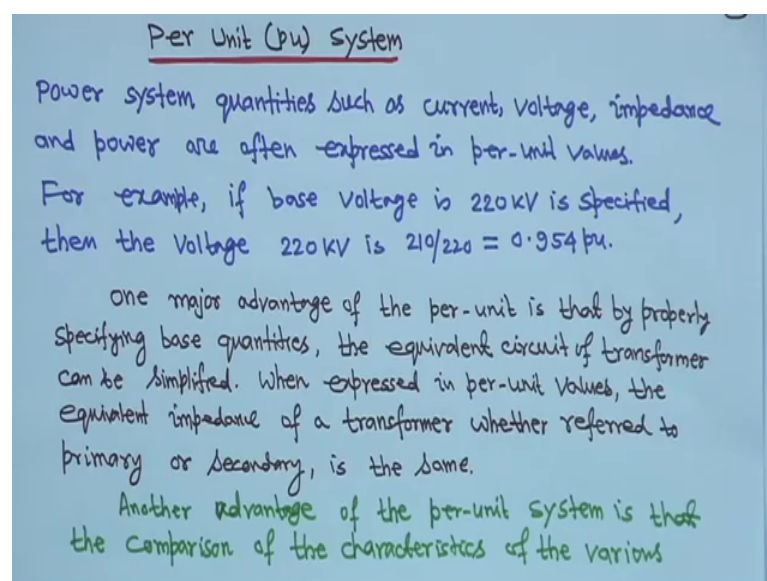 Per Unit (pu) System
Power system quantities such as current, voltage, impedance
and power are often expressed in per-unit values.
For example, if base voltage is 220 KV is specified,
then the voltage 220 KV is 210/220 = 0.954 pu.
One major advantage of the per-unit is that by properly
specifying base quantities, the equivalent circuit of transformer
can be simplified. When expressed in per-unit values, the
equivalent impedance of a transformer whether referred to
primary or secondary, is the same.
Another advantage of the per-unit system is that
the comparison of the characteristics of the various